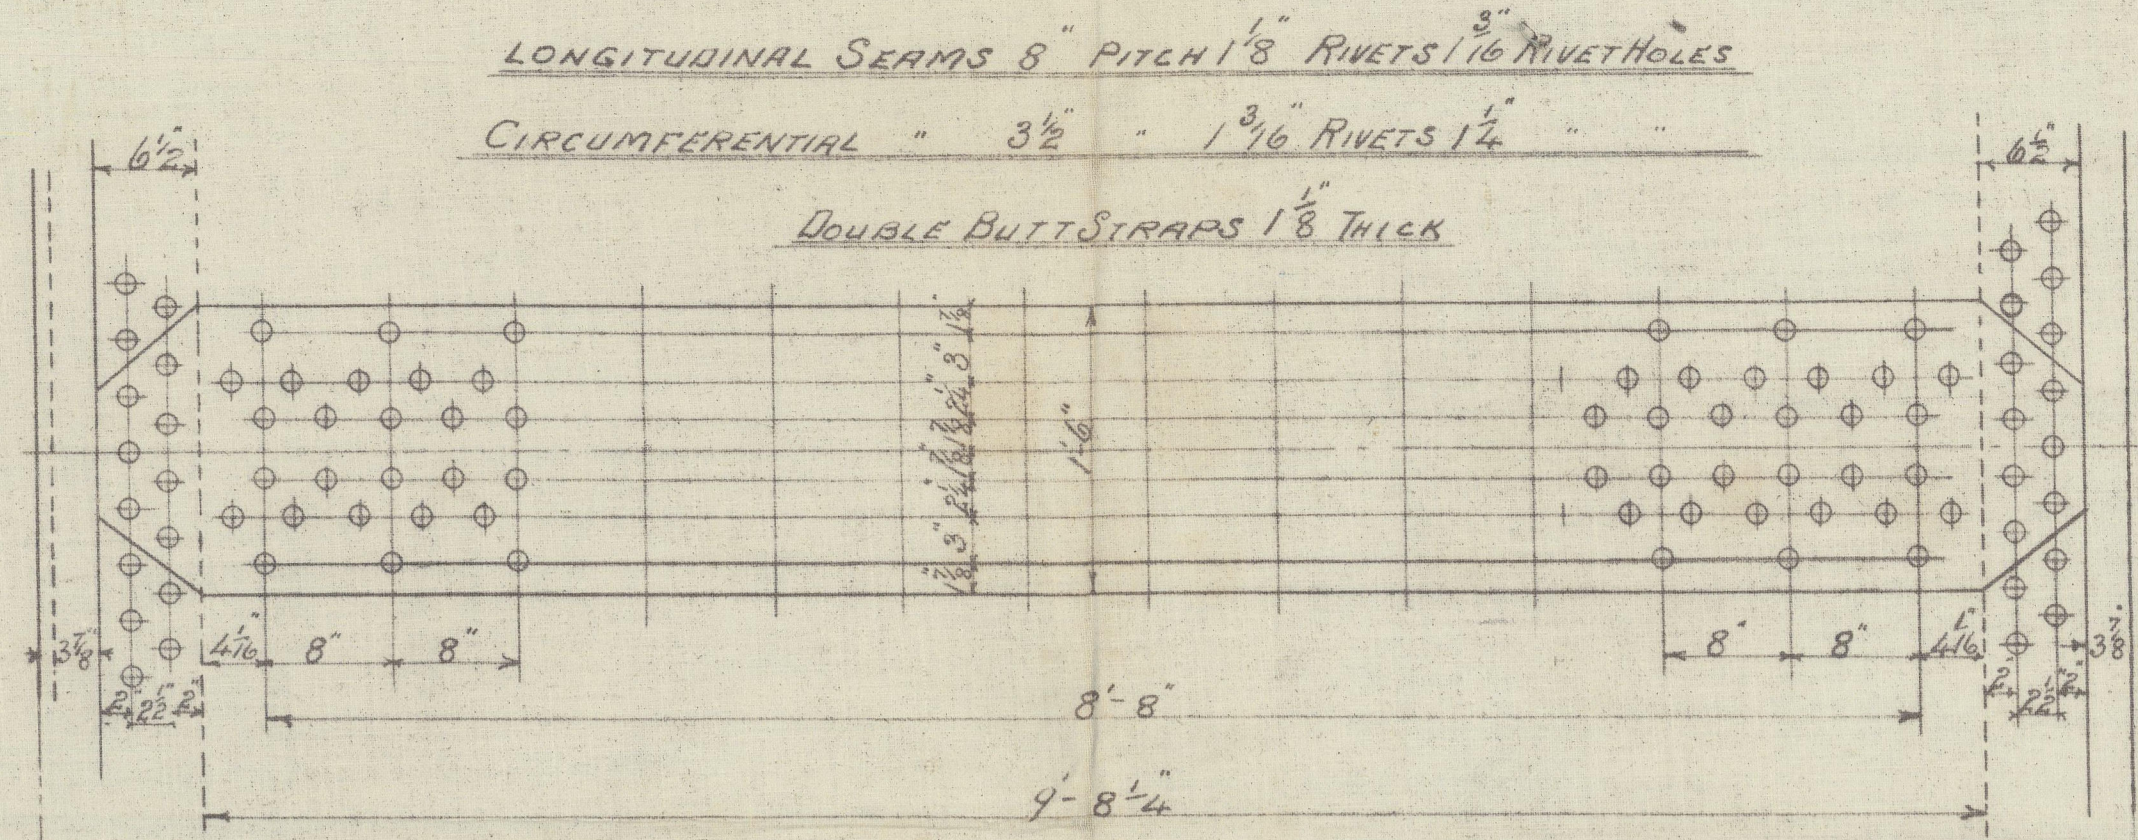 LONGITUDINAL SEAMS 8" PITCH 1 1/8" RIVETS 1 3/16" RIVET HOLES
CIRCUMFERENTIAL " 3 1/2" " 1 3/16" RIVETS 1 1/4" " "
DOUBLE BUTT STRAPS 1 1/8" THICK
6 1/2"
6 1/2"
1 7/8"
3"
2 1/4"
1 7/8"
1 7/8"
2 1/4"
3"
1 7/8"
1'-6"
3 7/8"
4 1/16"
8"
8"
8"
8"
4 1/16"
3 7/8"
2"
2 1/2"
2"
8'-8"
2"
2 1/2"
2"
9'-8 1/4"